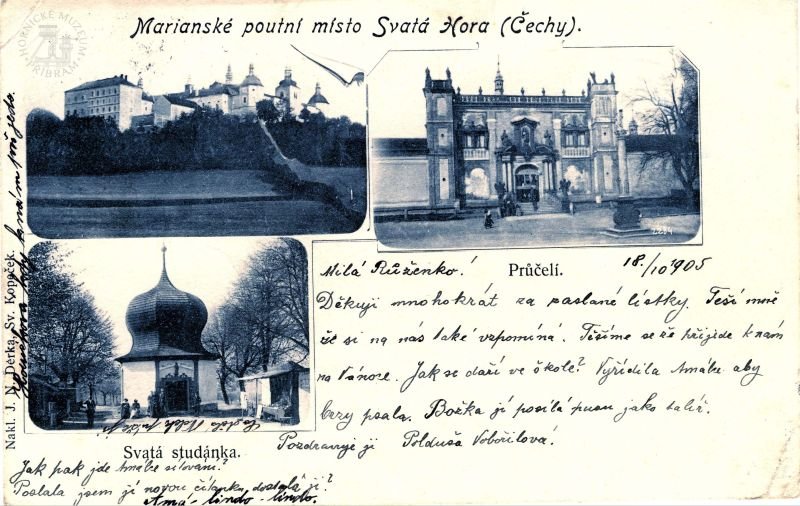 Marianské poutní místo Svatá Hora (Čechy).
HORNICKÉ MUZEUM
PŘÍBRAM
2234
Průčelí.
18./10 1905
Milá Růženko!
Děkuji mnohokrát za poslané lístky. Těší mně
že si na nás také vzpomíná. Těšíme se že přijede k nám
na Vánoce. Jak se daří ve škole? Vyřídila Amálce aby
brzy psala. Božka jí posílá pusu jako talíř.
Pozdravuje jí Polduša Vobořilová.
Svatá studánka.
Nakl. J. N. Děrka, Sv. Kopeček.
k nám přijede.
Jak pak jde Amálce
Poslala jsem jí novou čítanku dostala jí?